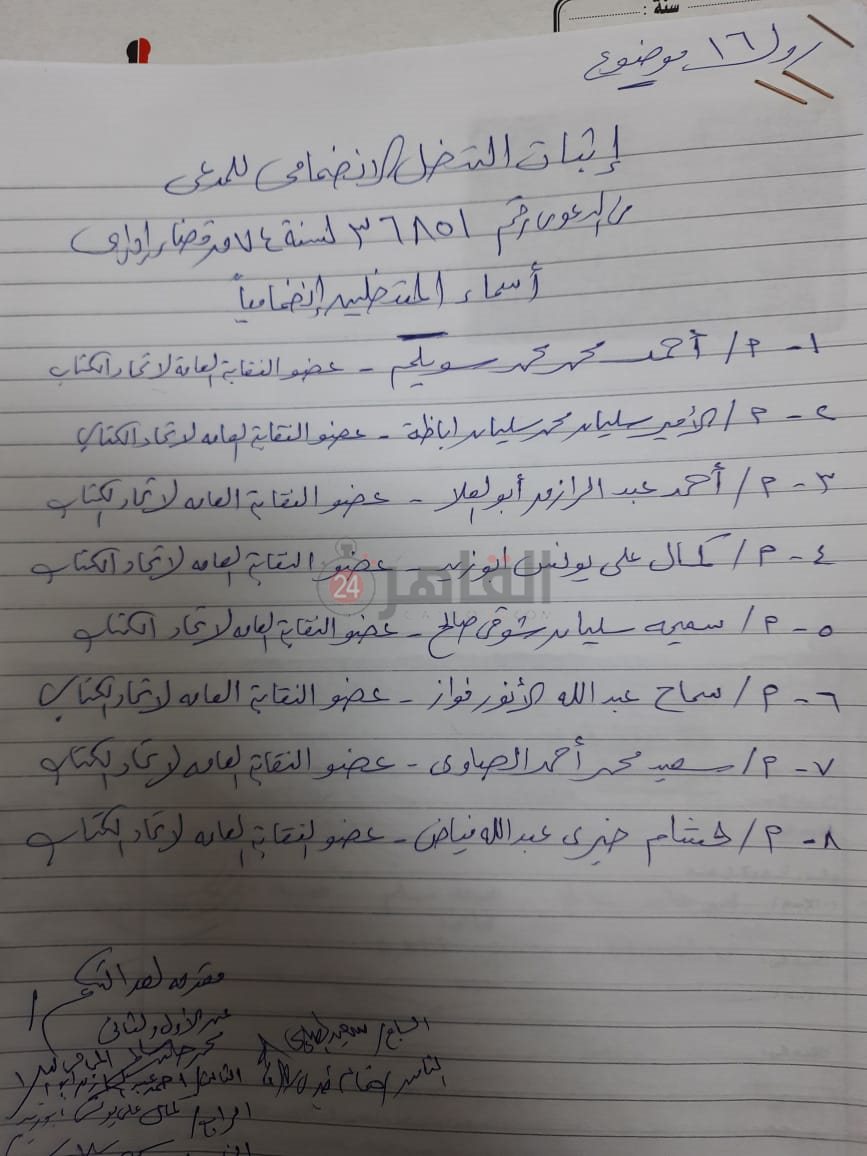 سنة :
رول ١٦ موضوع
إثبات التدخل الإنضمامى للمدعى
من الدعوى رقم ٣٦٨٥١ لسنة ٧٤ ق قضاء إدارى
أسماء المتدخلين إنضمامياً
١- م/ أحمد محمد محمد سويلم - عضو النقابة العامه لاتحاد الكتاب
٢- م/ الأمير سليمان محمد سليمان اباظة - عضو النقابة العامه لاتحاد الكتاب
٣- م/ أحمد عبد الرازق أبو العلا - عضو النقابة العامه لاتحاد الكتاب
٤- م/ كمال على يونس ابوزيد - عضو النقابة العامه لاتحاد الكتاب
القاهرة 24
٥- م/ سميه سليمان شوقى صالح - عضو النقابة العامه لاتحاد الكتاب
٦- م/ سماح عبد الله الأنور فواز - عضو النقابة العامه لاتحاد الكتاب
٧- م/ سعيد محمد أحمد الصاوى - عضو النقابة العامه لاتحاد الكتاب
٨- م/ هشام خيرى عبدالله فياض - عضو النقابة العامه لاتحاد الكتاب
مقدمه لهيئة
عن الأول والثانى
السابع/ سعيد الصاوى
الرابع/ كمال على يونس ابوزيد